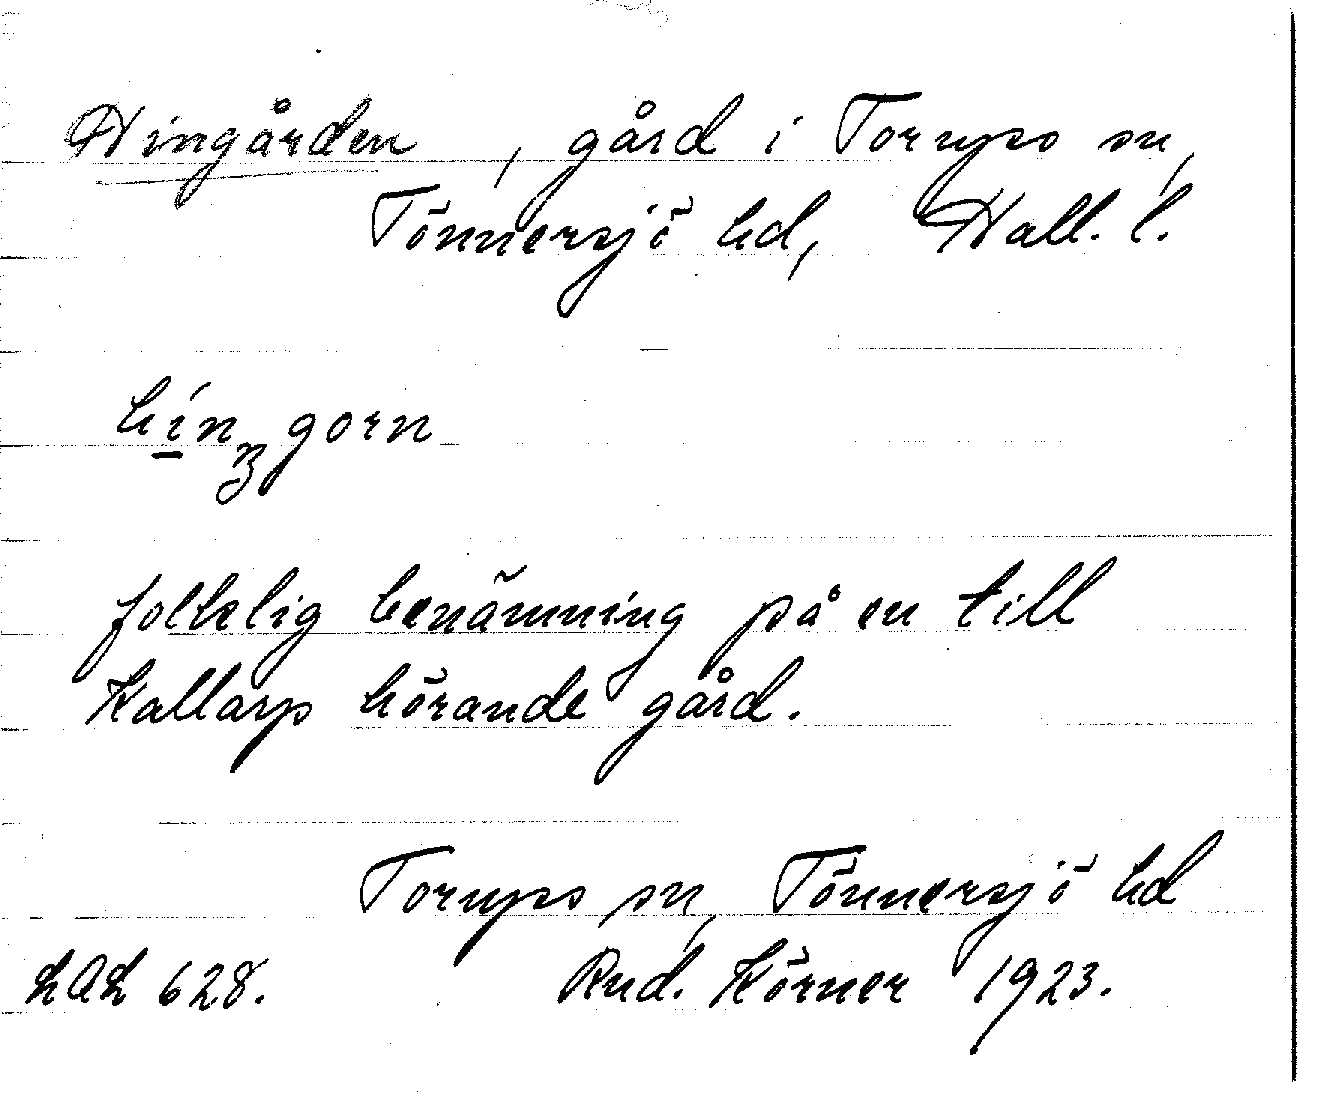 Hingården, gård i Torups sn,
Tönnersjö hd, Hall. l.
hí̱nʒgorn
folklig benämning på en till
Kallarp hörande gård.
Torups sn, Tönnersjö hd
LAL 628. Rud. Körner 1923.